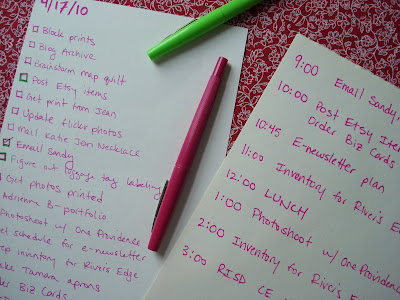 4/17/10
Block prints
Blog Archive
Brainstorm map quilt
Post Etsy items
Get print from Jean
Update flickr photos
Mail Katie Jean Necklace
Email Sandy
Figure out luggage tag labeling
Get photos printed
Adrienne B-portfolio
Photoshoot w/ One Providence
schedule for e-newsletter
inventory for River's Edge
Tamara aprons
Biz Cards
9:00 Email Sandy
10:00 Post Etsy Items
Order Biz Cards
10:45 E-newsletter plan
11:00 Inventory for River's E
12:00 LUNCH
1:00 Photoshoot w/ One
2:00 Inventory for River's E
3:00 RISD CE